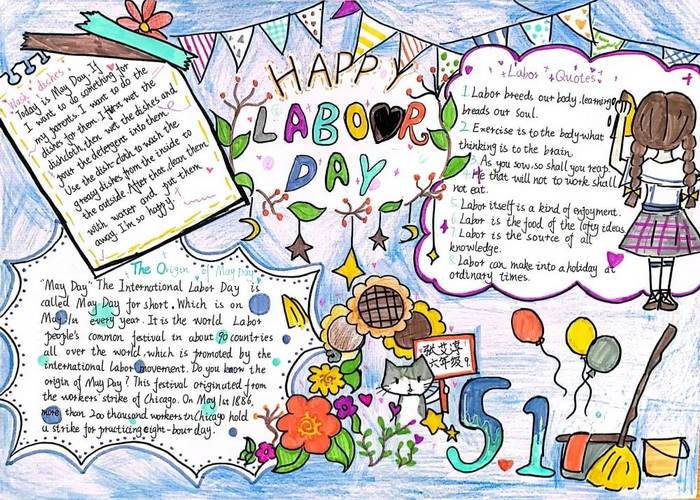 Wash dishes
Today is May Day. If
I want to do something for
my parents. I want to do the
dishes for them. I first wet the
dishcloth, then wet the dishes and
pour the detergent into them
Use the dish-cloth to wash the
greasy dishes from the inside to
the outside. After that, clean them
with water and put them
away. I'm so happy!
HAPPY
LABOR
DAY
Labor Quotes
1. Labor breeds our body, learning
breads our soul.
2. Exercise is to the body what
thinking is to the brain.
3. As you sow, so shall you reap.
4. He that will not to work shall
not eat.
5. Labor itself is a kind of enjoyment.
6. Labor is the food of the lofty ideas
7. Labor is the source of all
knowledge.
8. Labor can make into a holiday at
ordinary times.
The Origin of May Day
"May Day" The International Labor Day is
called May Day for short. Which is on
May.1st every year. It is the world Labor
people's common festival in about 90 countries
all over the world, which is promoted by the
international labor movement. Do you know the
origin of May Day? This festival originated from
the workers' strike of Chicago. On May.1st 1886,
more than 200 thousand workers in Chicago hold
a strike for practicing eight-hour day.
六年级9.
5.1